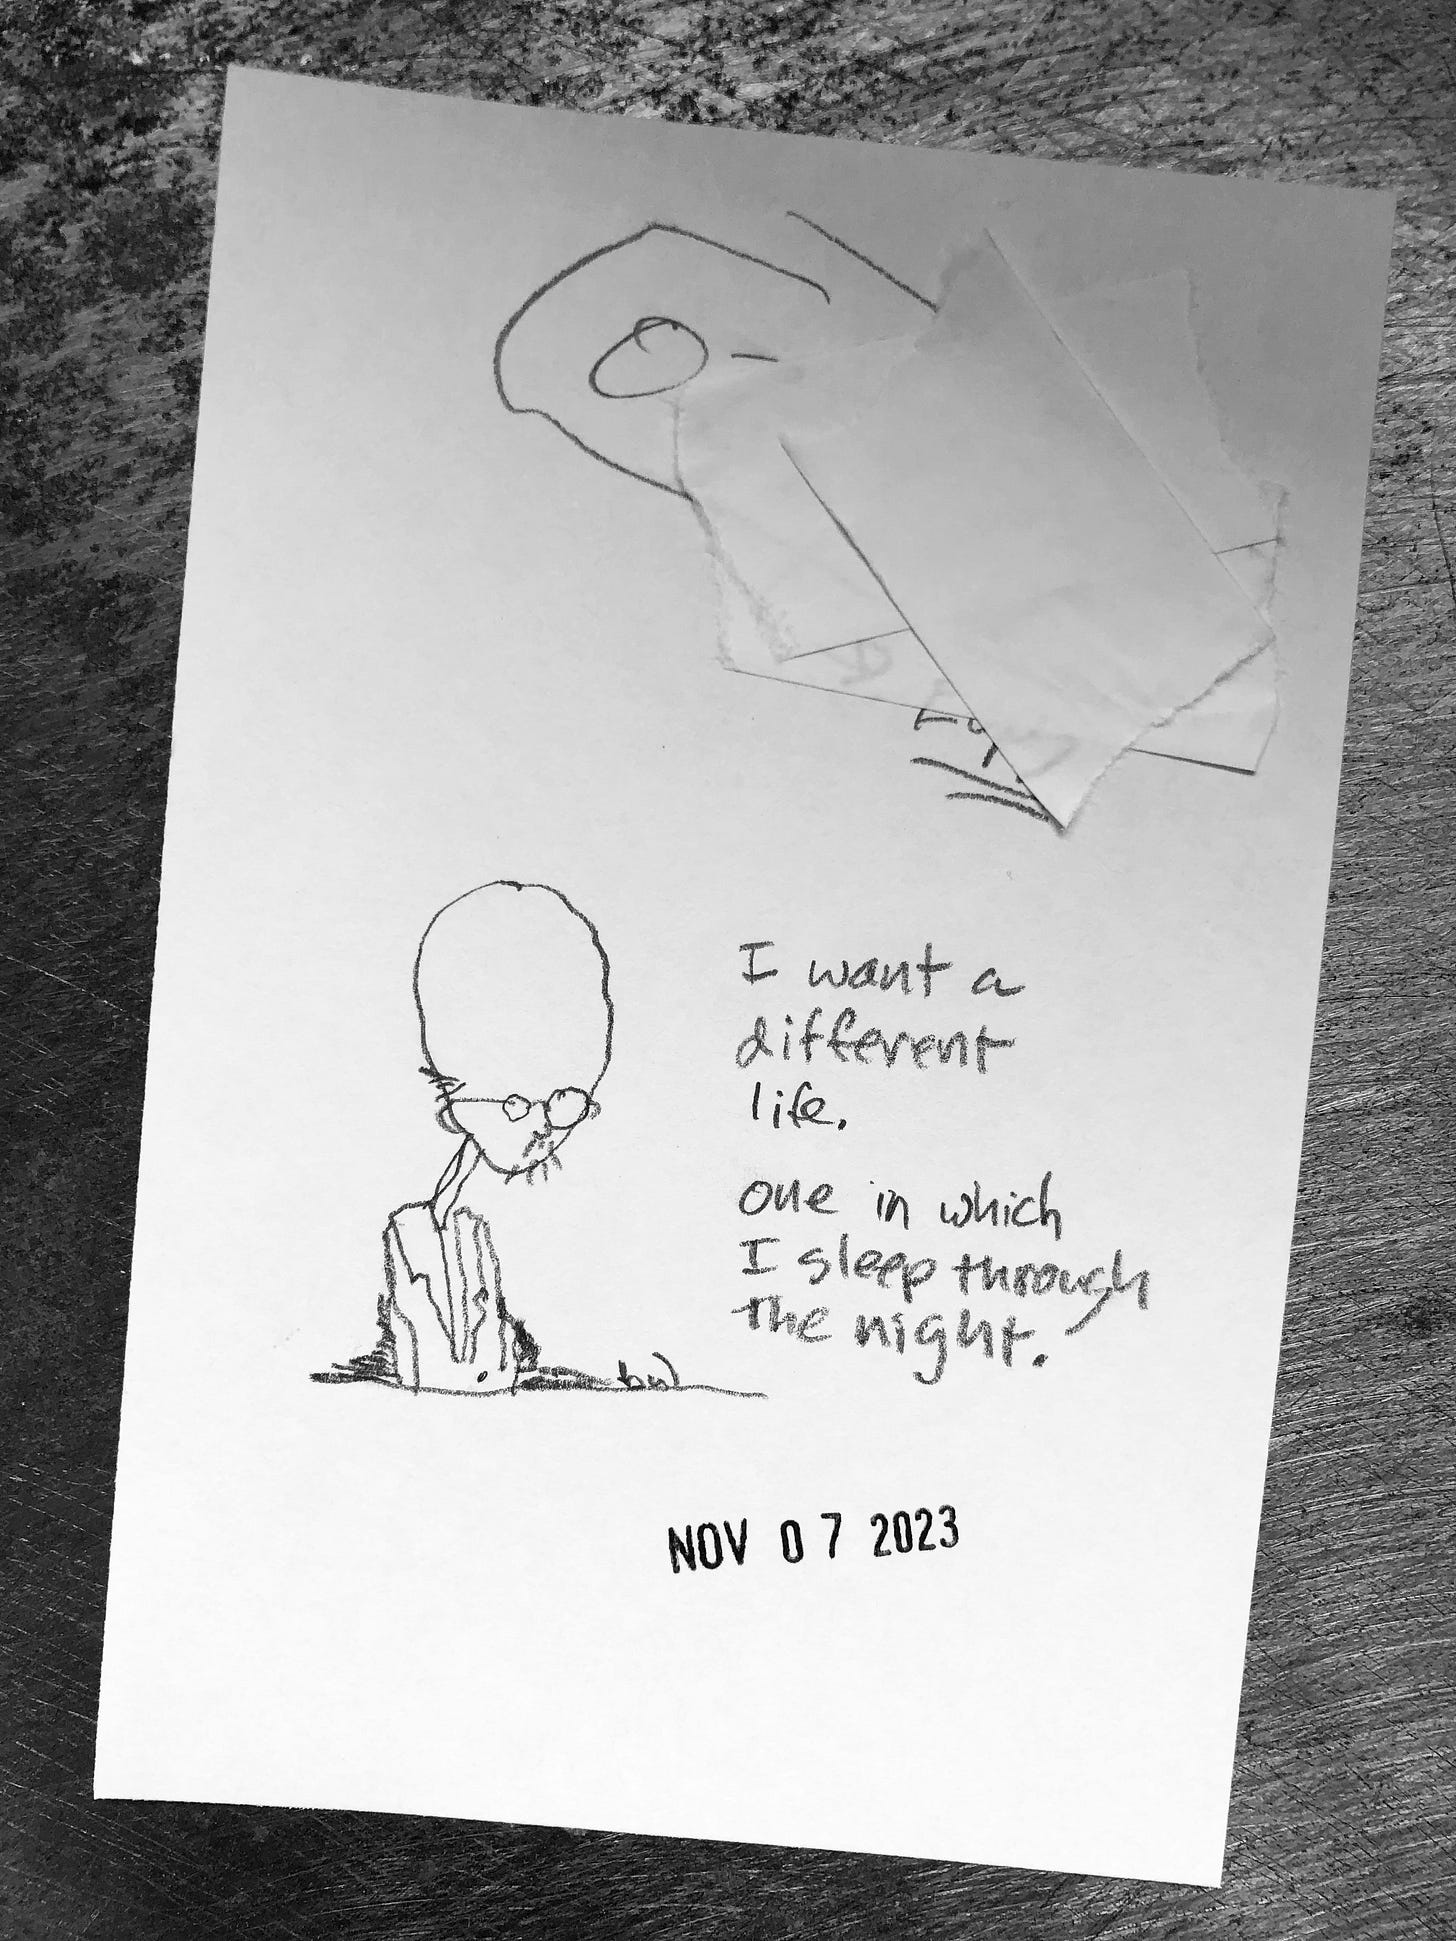 I want a
different
life.
one in which
I sleep through
the night.
bw
NOV 07 2023